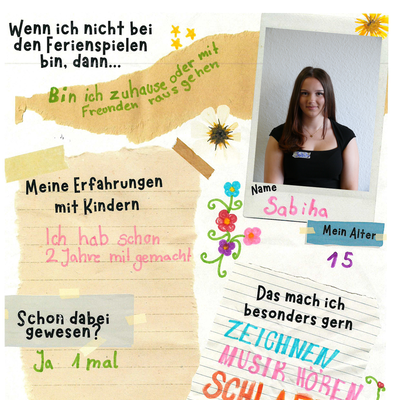 Wenn ich nicht bei
den Ferienspielen
bin, dann...
Bin ich zuhause oder mit
Freunden raus gehen
Meine Erfahrungen
mit Kindern
Ich hab schon
2 Jahre mitgemacht
Schon dabei
gewesen?
Ja 1 mal
Name
Sabiha
Mein Alter
15
Das mach ich
besonders gern
ZEICHNEN
MUSIK HÖREN